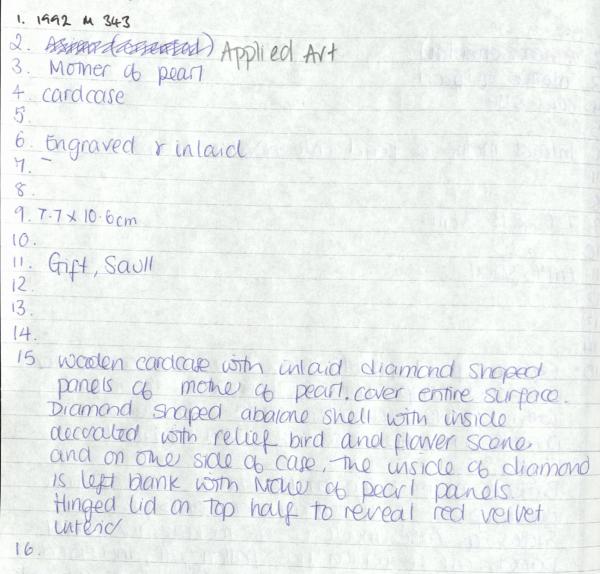 1. 1992 M 343
2. Applied Art
3. Mother of pearl
4. cardcase
5.
6. Engraved & inlaid
7. -
8.
9. 7.7 x 10.6cm
10.
11. Gift, Saull
12.
13.
14.
15 wooden cardcase with inlaid diamond shaped
panels of mothe of pearl. cover entire surface.
Diamond shaped abalone shell with inside
decorated with relief bird and flower scene
and on one side of case. The inside of diamond
is left blank with Mothe of pearl panels.
Hinged lid on top half to reveal red velvet
16.